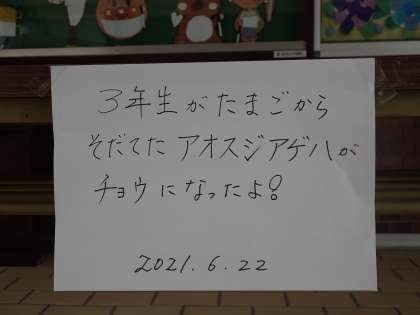 3年生がたまごから
そだてたアオスジアゲハが
チョウになったよ!
2021.6.22